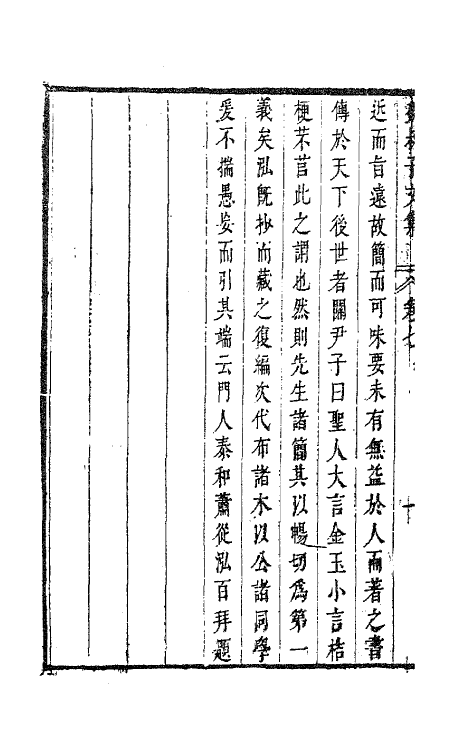 近而旨遠故簡而可味要未有無益於人而著之書
傳於天下後世者關尹子曰聖人大言金玉小言桔
梗芣苢此之謂也然則先生諸簡其以暢切爲第一
義矣泓既抄而藏之復編次代布諸木以公諸同學
爰不揣愚妄而引其端云門人泰和蕭從泓百拜題